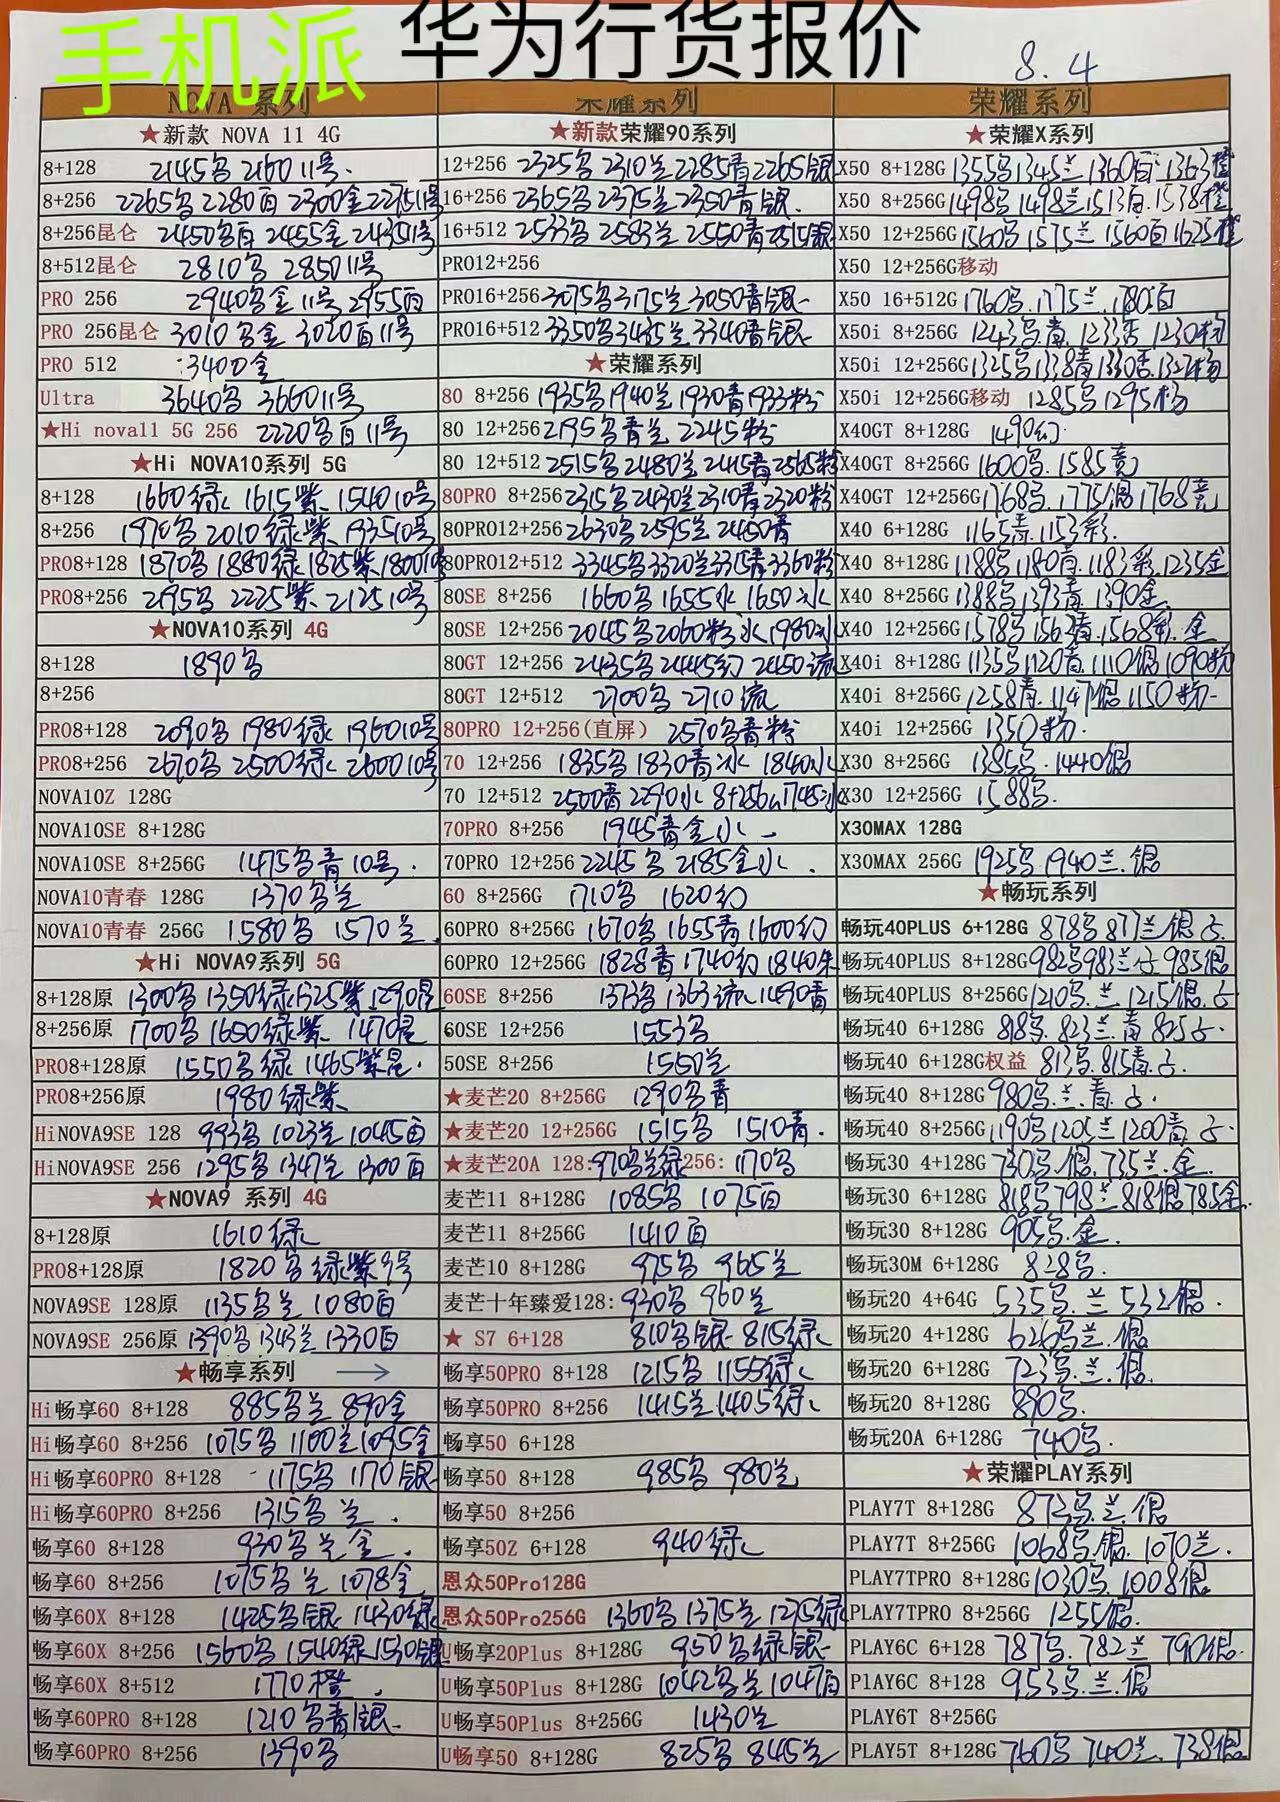 手机派
华为行货报价
8.4
NOVA 系列
荣耀系列
荣耀系列
★新款 NOVA 11 4G
8+128 2145 2160 11号
8+256 2265 2280百 2300金 2275 11号
8+256昆仑 2450 百 2455金 2435 11号
8+512昆仑 2810 2850 11号
PRO 256 2940 金 11号 2955百
PRO 256昆仑 3010 金 3020百 11号
PRO 512 3400金
Ultra 3640 3660 11号
★Hi nova11 5G 256 2220 百 11号
★Hi NOVA10系列 5G
8+128 1660绿 1615紫 1540 10号
8+256 1970 2010绿紫 1935 10号
PRO8+128 1870 1880绿 1825紫 1800 10号
PRO8+256 2195 2225紫 2125 10号
★NOVA10系列 4G
8+128 1890
8+256
PRO8+128 2090 1980绿 1960 10号
PRO8+256 2670 2500绿 2600 10号
NOVA10Z 128G
NOVA10SE 8+128G
NOVA10SE 8+256G 1475 青 10号
NOVA10青春 128G 1370 兰
NOVA10青春 256G 1580 1570兰
★Hi NOVA9系列 5G
8+128原 1300 1350绿 1325紫 1290昆
8+256原 1700 1650绿紫 1470昆
PRO8+128原 1550 绿 1465紫昆
PRO8+256原 1980绿紫
HiNOVA9SE 128 993 1023兰 1045百
HiNOVA9SE 256 1295 1347兰 1300百
★NOVA9 系列 4G
8+128原 1610绿
PRO8+128原 1820 绿紫 9号
NOVA9SE 128原 1135 兰 1080百
NOVA9SE 256原 1390 1343兰 1330百
★畅享系列 →
Hi畅享60 8+128 885 兰 890金
Hi畅享60 8+256 1075 1100兰 1095金
Hi畅享60PRO 8+128 1175 1170银
Hi畅享60PRO 8+256 1315 兰
畅享60 8+128 930 兰金
畅享60 8+256 1075 兰 1078金
畅享60X 8+128 1425 银 1430绿
畅享60X 8+256 1560 1540绿 1530银
畅享60X 8+512 1770橙
畅享60PRO 8+128 1210 青银
畅享60PRO 8+256 1390
★新款荣耀90系列
12+256 2325 2310兰 2285青 2265银
16+256 2365 2375兰 2350青银
16+512 2533 2583兰 2550青 2515银
PRO12+256
PRO16+256 3075 3175兰 3050青银
PRO16+512 3350 3435兰 3340青银
★荣耀系列
80 8+256 1935 1940兰 1930青 1933粉
80 12+256 2195 青兰 2245粉
80 12+512 2515 2480兰 2415青 2565粉
80PRO 8+256 2315 2430兰 2310青 2320粉
80PRO12+256 2630 2595兰 2450青
80PRO12+512 3345 3320兰 3315青 3360粉
80SE 8+256 1660 1655水 1650冰
80SE 12+256 2045 2060粉水 1980冰
80GT 12+256 2435 2445幻 2450流
80GT 12+512 2700 2710流
80PRO 12+256(直屏) 2570 青粉
70 12+256 1835 1830青冰 1840水
70 12+512 2500青 2290水 8+256 1745冰
70PRO 8+256 1945青金水
70PRO 12+256 2245 2185金水
60 8+256G 1710 1620幻
60PRO 8+256G 1670 1655青 1600幻
60PRO 12+256G 1828青 1740幻 1840朱
60SE 8+256 1373 1363流 1490青
60SE 12+256 1553
50SE 8+256 1550兰
★麦芒20 8+256G 1290 青
★麦芒20 12+256G 1515 1510青
★麦芒20A 128:970 兰绿 256: 1170
麦芒11 8+128G 1085 1075百
麦芒11 8+256G 1410百
麦芒10 8+128G 975 965兰
麦芒十年臻爱128: 930 960兰
★ S7 6+128 810 银 815绿
畅享50PRO 8+128 1215 1155绿
畅享50PRO 8+256 1415兰 1405绿
畅享50 6+128
畅享50 8+128 985 980兰
畅享50 8+256
畅享50Z 6+128 940绿
恩众50Pro128G
恩众50Pro256G 1360 1375兰 1275绿
U畅享20Plus 8+128G 950 绿银
U畅享50Plus 8+128G 1042 兰 1047百
U畅享50Plus 8+256G 1430兰
U畅享50 8+128G 825 845兰
★荣耀X系列
X50 8+128G 1355 1345兰 1360百 1363橙
X50 8+256G 1498 1498兰 1513百 1538橙
X50 12+256G 1560 1575兰 1560百 1625橙
X50 12+256G移动
X50 16+512G 1760 1775兰 1780百
X50i 8+256G 1243 青 1233杏 1230粉
X50i 12+256G 1325 1338青 1330杏 1327粉
X50i 12+256G移动 1285 1295粉
X40GT 8+128G 1490幻
X40GT 8+256G 1600 1585竞
X40GT 12+256G 1768 1775 1768竞
X40 6+128G 1165青 1153彩
X40 8+128G 1188 1180青 1183彩 1235金
X40 8+256G 1388 1393青 1390金
X40 12+256G 1578 1563青 1568彩 金
X40i 8+128G 1135 1120青 1110银 1090粉
X40i 8+256G 1258青 1147银 1150粉
X40i 12+256G 1350粉
X30 8+256G 1385 1440银
X30 12+256G 1588
X30MAX 128G
X30MAX 256G 1925 1940兰 银
★畅玩系列
畅玩40PLUS 6+128G 878 877兰 银
畅玩40PLUS 8+128G 982 983兰 985银
畅玩40PLUS 8+256G 1210 兰 1215银
畅玩40 6+128G 818 823兰 青 825
畅玩40 6+128G权益 813 815青
畅玩40 8+128G 980 兰 青
畅玩40 8+256G 1190 1205兰 1200青
畅玩30 4+128G 730 银 735兰 金
畅玩30 6+128G 818 798兰 818银 785金
畅玩30 8+128G 905 金
畅玩30M 6+128G 828
畅玩20 4+64G 535 兰 532银
畅玩20 4+128G 626 兰 银
畅玩20 6+128G 723 兰 银
畅玩20 8+128G 890
畅玩20A 6+128G 740
★荣耀PLAY系列
PLAY7T 8+128G 873 兰 银
PLAY7T 8+256G 1068 银 1070兰
PLAY7TPRO 8+128G 1030 1008银
PLAY7TPRO 8+256G 1255银
PLAY6C 6+128 787 782兰 790银
PlAY6C 8+128 953 兰 银
PLAY6T 8+256G
PLAY5T 8+128G 760 740兰 738银